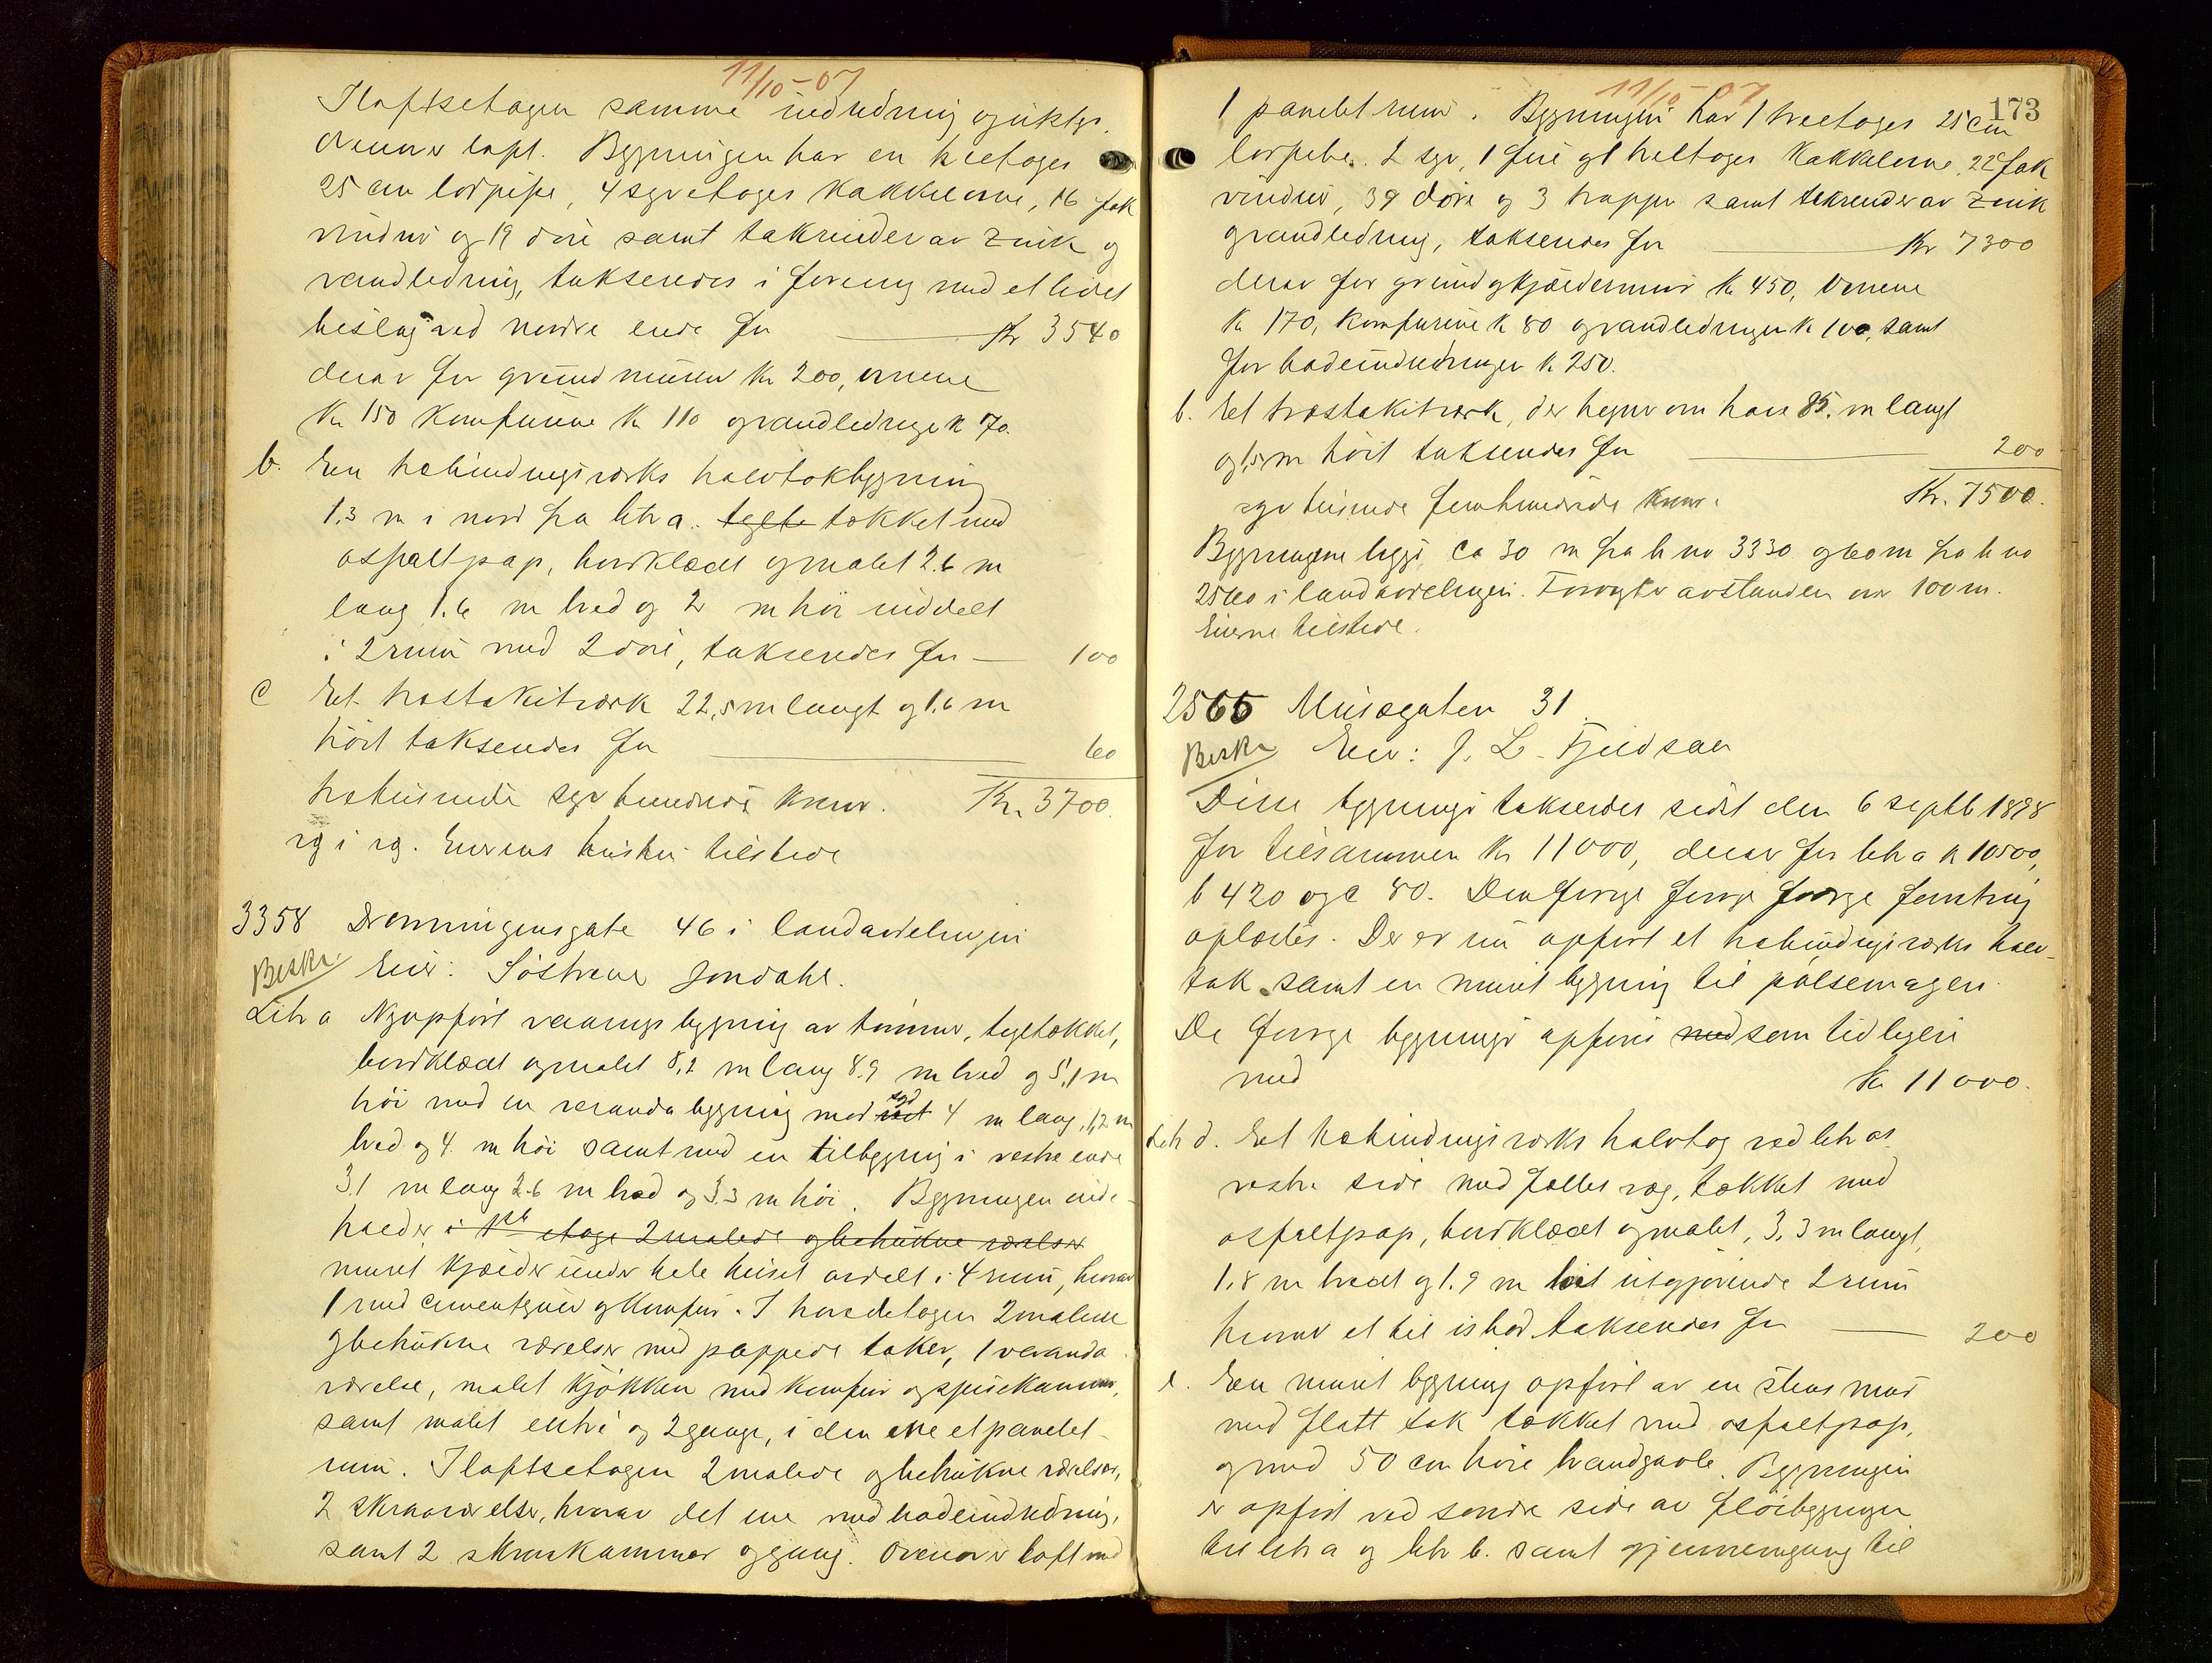 11/10-07
I loftsetagen samme indredning og utstyr.
Ovenover loft. Bygningen har en treetages
25 cm lorpipe, 4 syvetages kakkelovne, 16 fak
vinduer og 19 døre samt takrender av zink og
vandledning, takseredes i forening med et lidet
beslag ved nordre ende for Kr 3540
derav for grundmuren Kr 200, ovnene
Kr 150 komfurene Kr 110 og vandledningen Kr 70.
b. En trebindingsverks halvtakbygning
1.3 m i nord fra litr a. tegle tækket med
asfaltpap, bordklædt og malet 2.6 m
lang 1.6 m bred og 2 m høi inddelt
i 2 rum med 2 døre, takseredes for 100
c Et træstakitværk 22,5 m langt og 1.6 m
høit takseredes for 60
tretusinde syvhundrede kroner. Kr. 3700.
vg i vg. Eierens hustru tilstede
3358 Dronningensgate 46 i landavdelingen
Beskr. Eier: Søstrene Jondahl.
Litr a Nyopført vaaningsbygning av tømmer, tegltækket,
bordklædt og malet 8,2 m lang 8.9 m bred og 5,1 m
høi med en verandabygning mod vest syd 4 m lang, 1,2 m
bred og 4 m høi samt med en tilbygning i vestre ende
3.1 m lang 2.6 m bred og 3.3 m høi. Bygningen inde-
holder i 1ste etage 2 malede og betrukne værelser
muret kjælder under hele huset avdelt i 4 rum, hvorav
1 med cementgulv og komfur. I hovedetagen 2 malede
og betrukne værelser med pappede taker, 1 veranda
værelse, malet kjøkken med komfur og spisekammer,
samt malet entré og 2 gange, i den ene et panelet
rum. I loftsetagen 2 malede og betrukne værelser,
2 skraaværelser, hvorav det ene med badeindredning,
samt 2 skraakammer og gang. Ovenover loft med
11/10-07
173
1 panelet rum. Bygningen har 1 treetages 25 cm
lorpibe. 2 syv, 1 fire og 1 treetages kakkelovne, 22 fak
vinduer, 39 døre og 3 trapper samt takrender av zink
og vandledning, takseredes for Kr 7300
derav for grund og kjældermur Kr 450, Ovnene
Kr 170, komfurene Kr 80 og vandledningen Kr 100, samt
for badeindredningen Kr 250.
b. Et træstakitværk, der hegner om have 85. m langt
og 1,5 m høit takseredes for 200
syv tusinde femhundrede kroner. Kr. 7500.
Bygningene ligger ca 30 m fra br no 3330 og 60 m fra br no
2560 i landavdelingen. Forøvrig er avstanden over 100 m.
Eierne tilstede.
2565 Musegaten 31
Beskr Eier: J. L. Fjeldsaa
Disse bygninger takseredes sidst den 6 septb 1898
for tilsammen Kr 11000, derav for litr a Kr 10500,
b 420 og c 80. Den forrige forrige forrige forretning
oplæstes. Der er nu opført et trebindingsverks halv-
tak samt en muret bygning til pølsemageri.
De forrige bygninger opføres med som tidligere
med Kr 11000.
Litr d. Et trebindingsverks halvtag ved litr as
vestre side med fælles væg, tækket med
asfaltpap, bordklædt og malet, 3,3 m langt,
1.8 m bredt og 1.9 m høit utgjørende 2 rum
hvorav et til isbod takseredes for 200
e. En muret bygning opført av en stens mur
med flatt tak tækket med asfaltpap,
og med 50 cm høie brandgavle. Bygningen
er opført ved søndre side av fløibygningen
til litr a og litr b. samt gjennemgang til